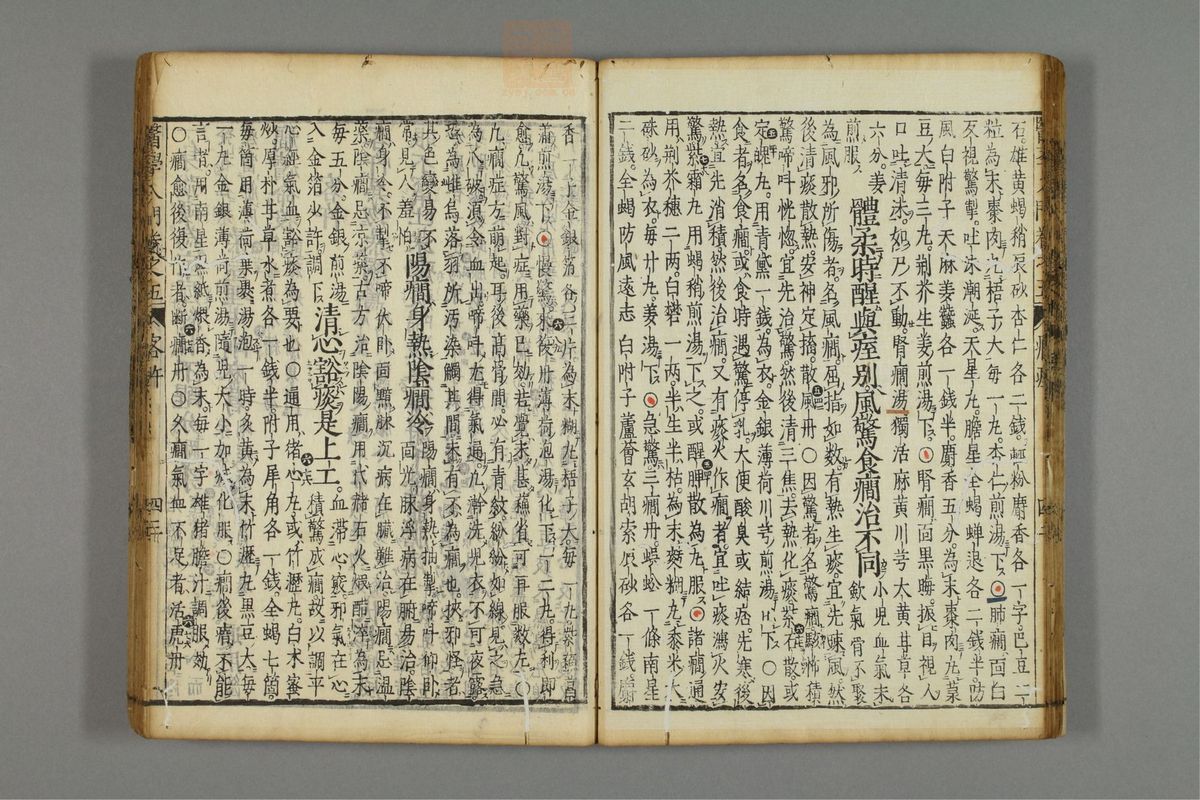 石雄黃蝎稍辰砂杏仁各二錢輕粉麝香各一字巴豆二
粒為末棗肉丸梧子大每一丸杏仁煎湯下〇肺癎面白
反視驚掣吐沫潮涎天星丸膽星全蝎蟬退各二錢半防
風白附子天麻麥蠶各一錢半麝香五分為末棗肉丸菉
豆大每三丸荊芥生姜煎湯下〇腎癎面黑晦振目視人
口吐清沫如尸不動腎癎湯獨活麻黃川芎大黃甘草各
六分姜
煎服
體柔時醒與痓別風驚食癎治不同
小兒血氣未
歛氣骨不聚
為風邪所傷者名風癎屈指如数有熱生痰宜先疎風然
後清痰散熱安神定搐散風丹〇因驚者名驚癎駭怖積
驚啼叫恍惚宜先治驚然後清三焦去熱化痰紫不散或
定魄丸用青黛一錢為衣金銀薄荷川芎煎湯下〇因
食者名食癎或食時遇驚停乳大便酸臭或結痞先寒後
熱宜先消積然後治癎又有痰火作癎者宜吐痰瀉火安
驚紫霜丸用蝎稍煎湯下之或醒脾散為丸服〇諸癎通
用荊芥穗二兩白礬一兩半生半枯為末麵糊丸黍米大
硃砂為衣每廿丸姜湯下〇急驚三癎丹蜈蚣一條南星
二錢全蝎防風遠志白附子蘆薈玄胡索辰砂各一錢麝
香一字金銀箔各三片為末糊丸梧子大每一丸
薄荷煎湯下〇慢驚氷後片薄荷泡湯化下一二丸得利即
愈凣驚風對症用藥已効若覺未甚穩省可再服数丸〇
凣癎症方萌起耳後高骨間必有青紋紛紛如線見之急
為爪破須令血出啼叫尤得氣通凣浣洗児衣不可夜露
恐為雌烏落羽所汚染觸其間未有不為癎也挾邪怪者
其色變易不
常見人羞怕
陽癎身熱陰癎冷
陽癎身熱抽掣啼叫仰臥
面光脉浮病在腑易治陰
癎身冷不掣不啼伏臥面黯脉沉病在臟難治陽癎忌温
藥陰癎忌凉藥古方治陰陽癎用代赭石火煆醋淬為末
每五分金銀煎湯
入金箔少許調下
清心豁痰是上工
血滯心竅邪氣在心
積驚成癎故以調平
心經氣血豁痰為要也〇通用猪心丸或竹瀝丸白木蜜
炒厚朴甘草水煮各一錢半附子犀角各一錢全蝎七箇
每箇用薄荷葉裹湯泡一時炙黃為末竹瀝丸黑豆大每
一丸金銀薄荷煎湯隨兒大小加减化服〇癎後瘖不能
言者用南星湿紙煨香為末每一字雄猪膽汁調服効
〇癎愈後復作者断癎丹〇久癎氣血不足者活虎丹